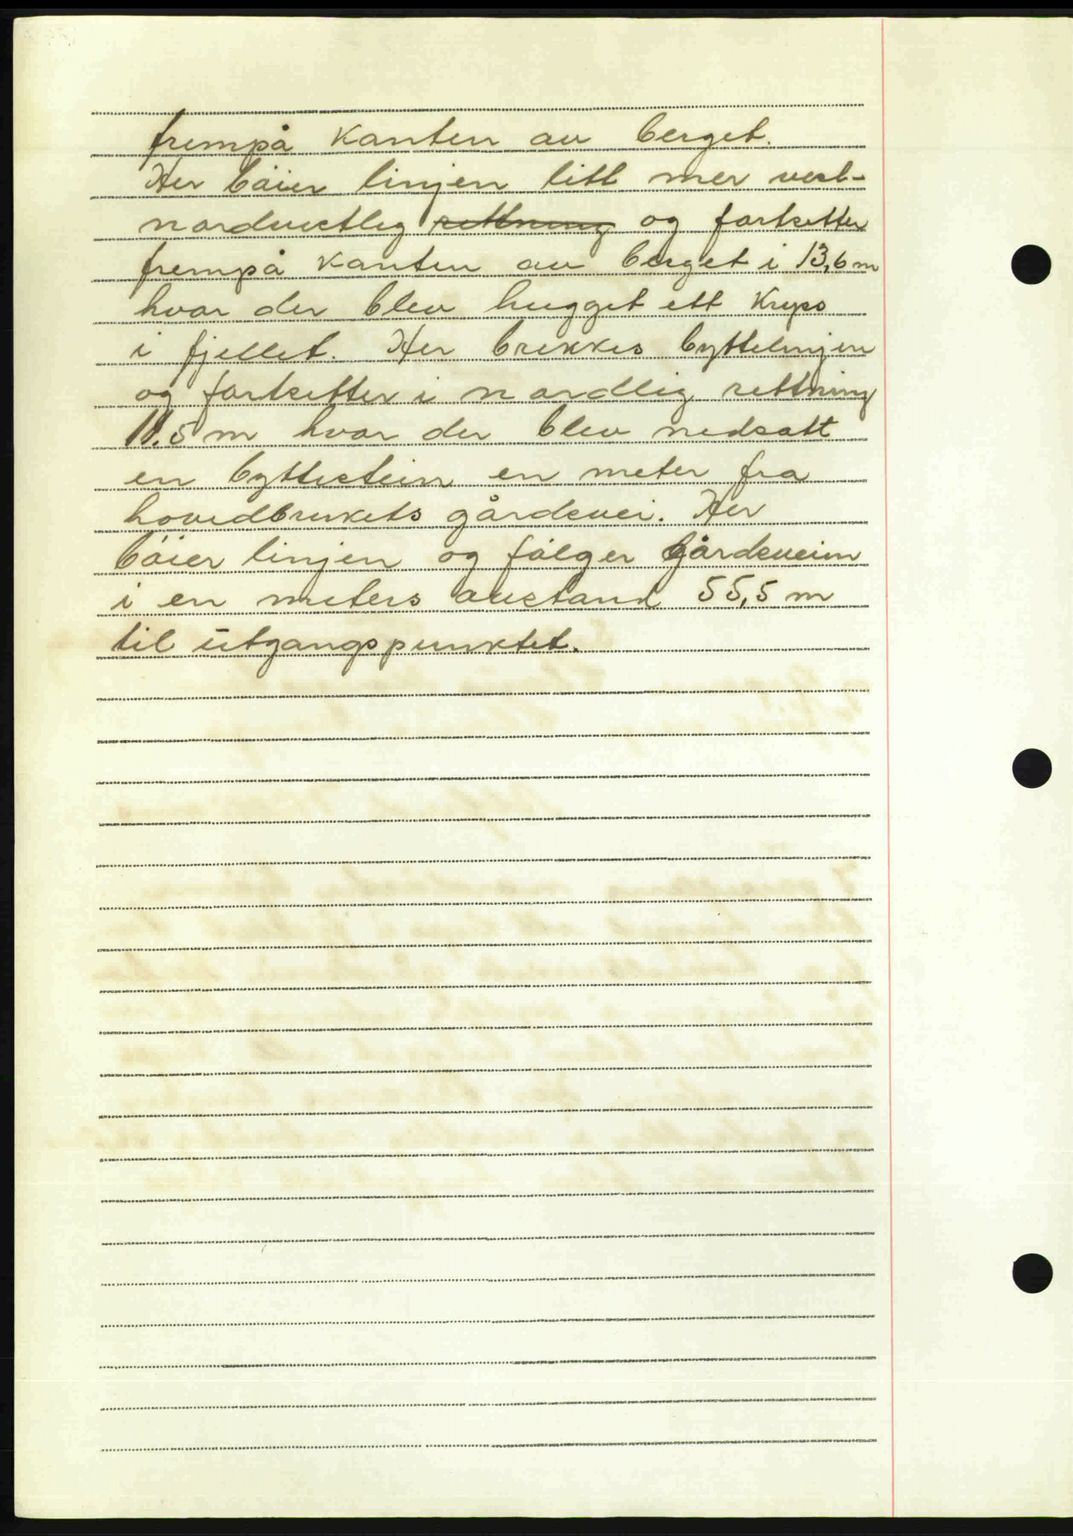 frempå kanten av berget.
Her bøier linjen litt mer vest-
nordvestlig rettning og fortsetter
frempå kanten av berget i 13,6 m
hvor der blev hugget ett kryss
i fjellet. Her brekkes byttelinjen
og fortsetter i nordlig rettning
11.5 m hvor der blev nedsatt
en byttestein en meter fra
hovedbrukets gårdsvei. Her
bøier linjen og følger gårdsveien
i en meters avstand 55,5 m
til utgangspunktet.